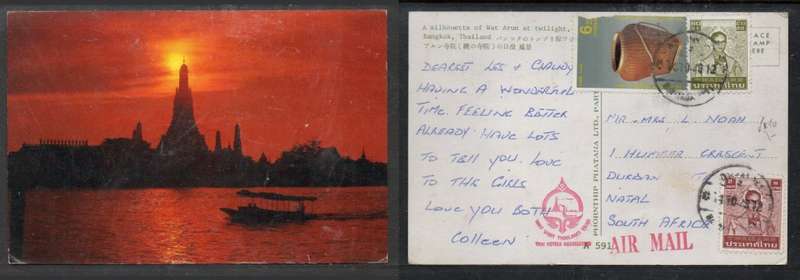 A silhouette of Wat Arun at twilight,
Bangkok, Thailand
DEAREST LES &
HAVING A WONDERFUL
TIME. FEELING BETTER
ALREADY. HAVE LOTS
TO TELL YOU. LOVE
TO THE GIRLS
LOVE YOU BOTH
Colleen
PHORNTHIP PHATANA LTD, PART
A 591
6
PLACE
STAMP
HERE
ประเทศไทย
MR. MRS L. NOAH
CRESCENT
DURBAN
NATAL
SOUTH AFRICA
AIR MAIL
ประเทศไทย